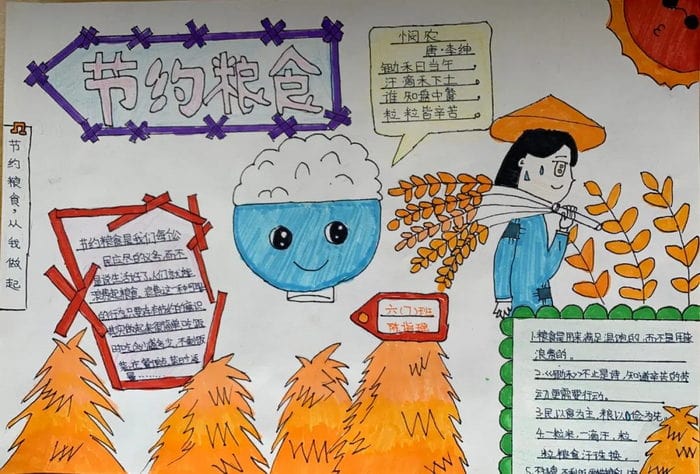 节约粮食
悯农
唐·李绅
锄禾日当午
汗滴禾下土
谁知盘中餐
粒粒皆辛苦
节约粮食，从我做起
节约粮食是我们每个公
民应尽的义务,而不
是说生活好了,人们就能
浪费起粮食
的行为只要
其实做起来很简单:吃饭
时吃
六(7)班
1.粮食是用来满足温饱的,而不是用来
浪费的。
2.《锄禾》不止是诗,知道辛苦的劳
动更需要行动。
3.民以食为主,粮以俭为先。
4.一粒米,一滴汗,粒
粒粮食汗珠换。